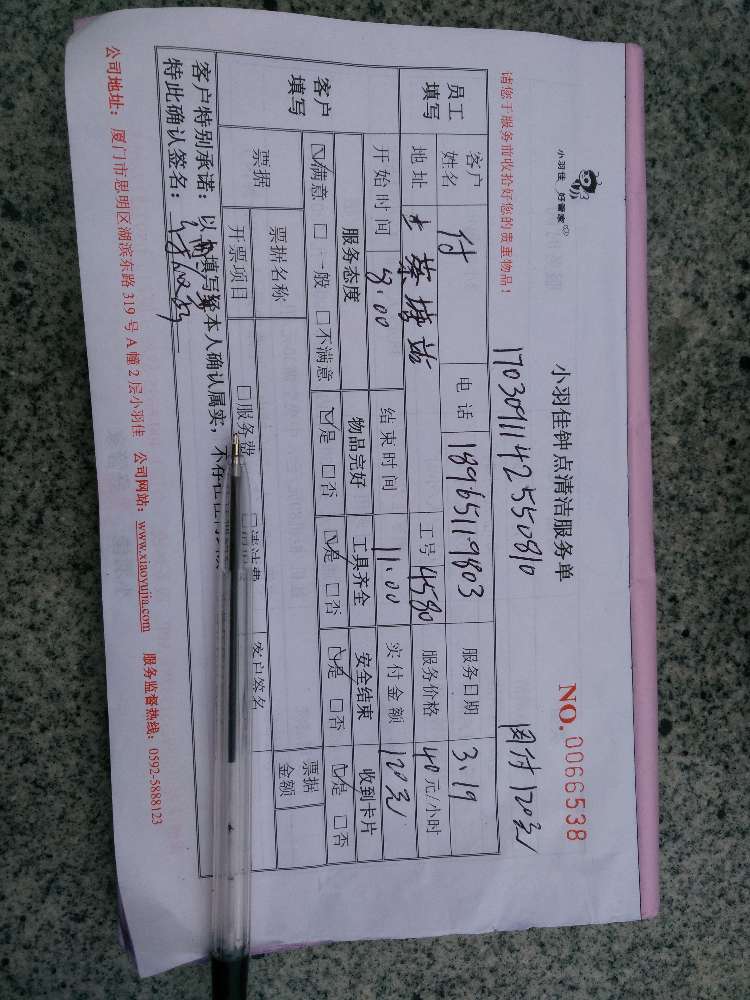 小羽佳 好管家
小羽佳钟点清洁服务单
NO. 0066538
1703091142550810
请您于服务前收拾好您的贵重物品！
员工填写 客户姓名 付 电话 18965119803 服务日期 3.19
地址 蔡塘站 工号 4580 服务价格 40元/小时
开始时间 8.00 结束时间 11.00 实付金额 120元
客户填写 服务态度 物品完好 工具齐全 安全结束 收到卡片
☑满意 □一般 □不满意 ☑是 □否 ☑是 □否 ☑是 □否 ☑是 □否
票据 票据名称 票据金额
开票项目 □服务费 客户签名
客户特别承诺：以上填写经本人确认属实，
特此确认签名：
公司地址：厦门市思明区湖滨东路319号A幢2层小羽佳 公司网站：www.xiaoyujia.com 服务监督热线：0592-5888123